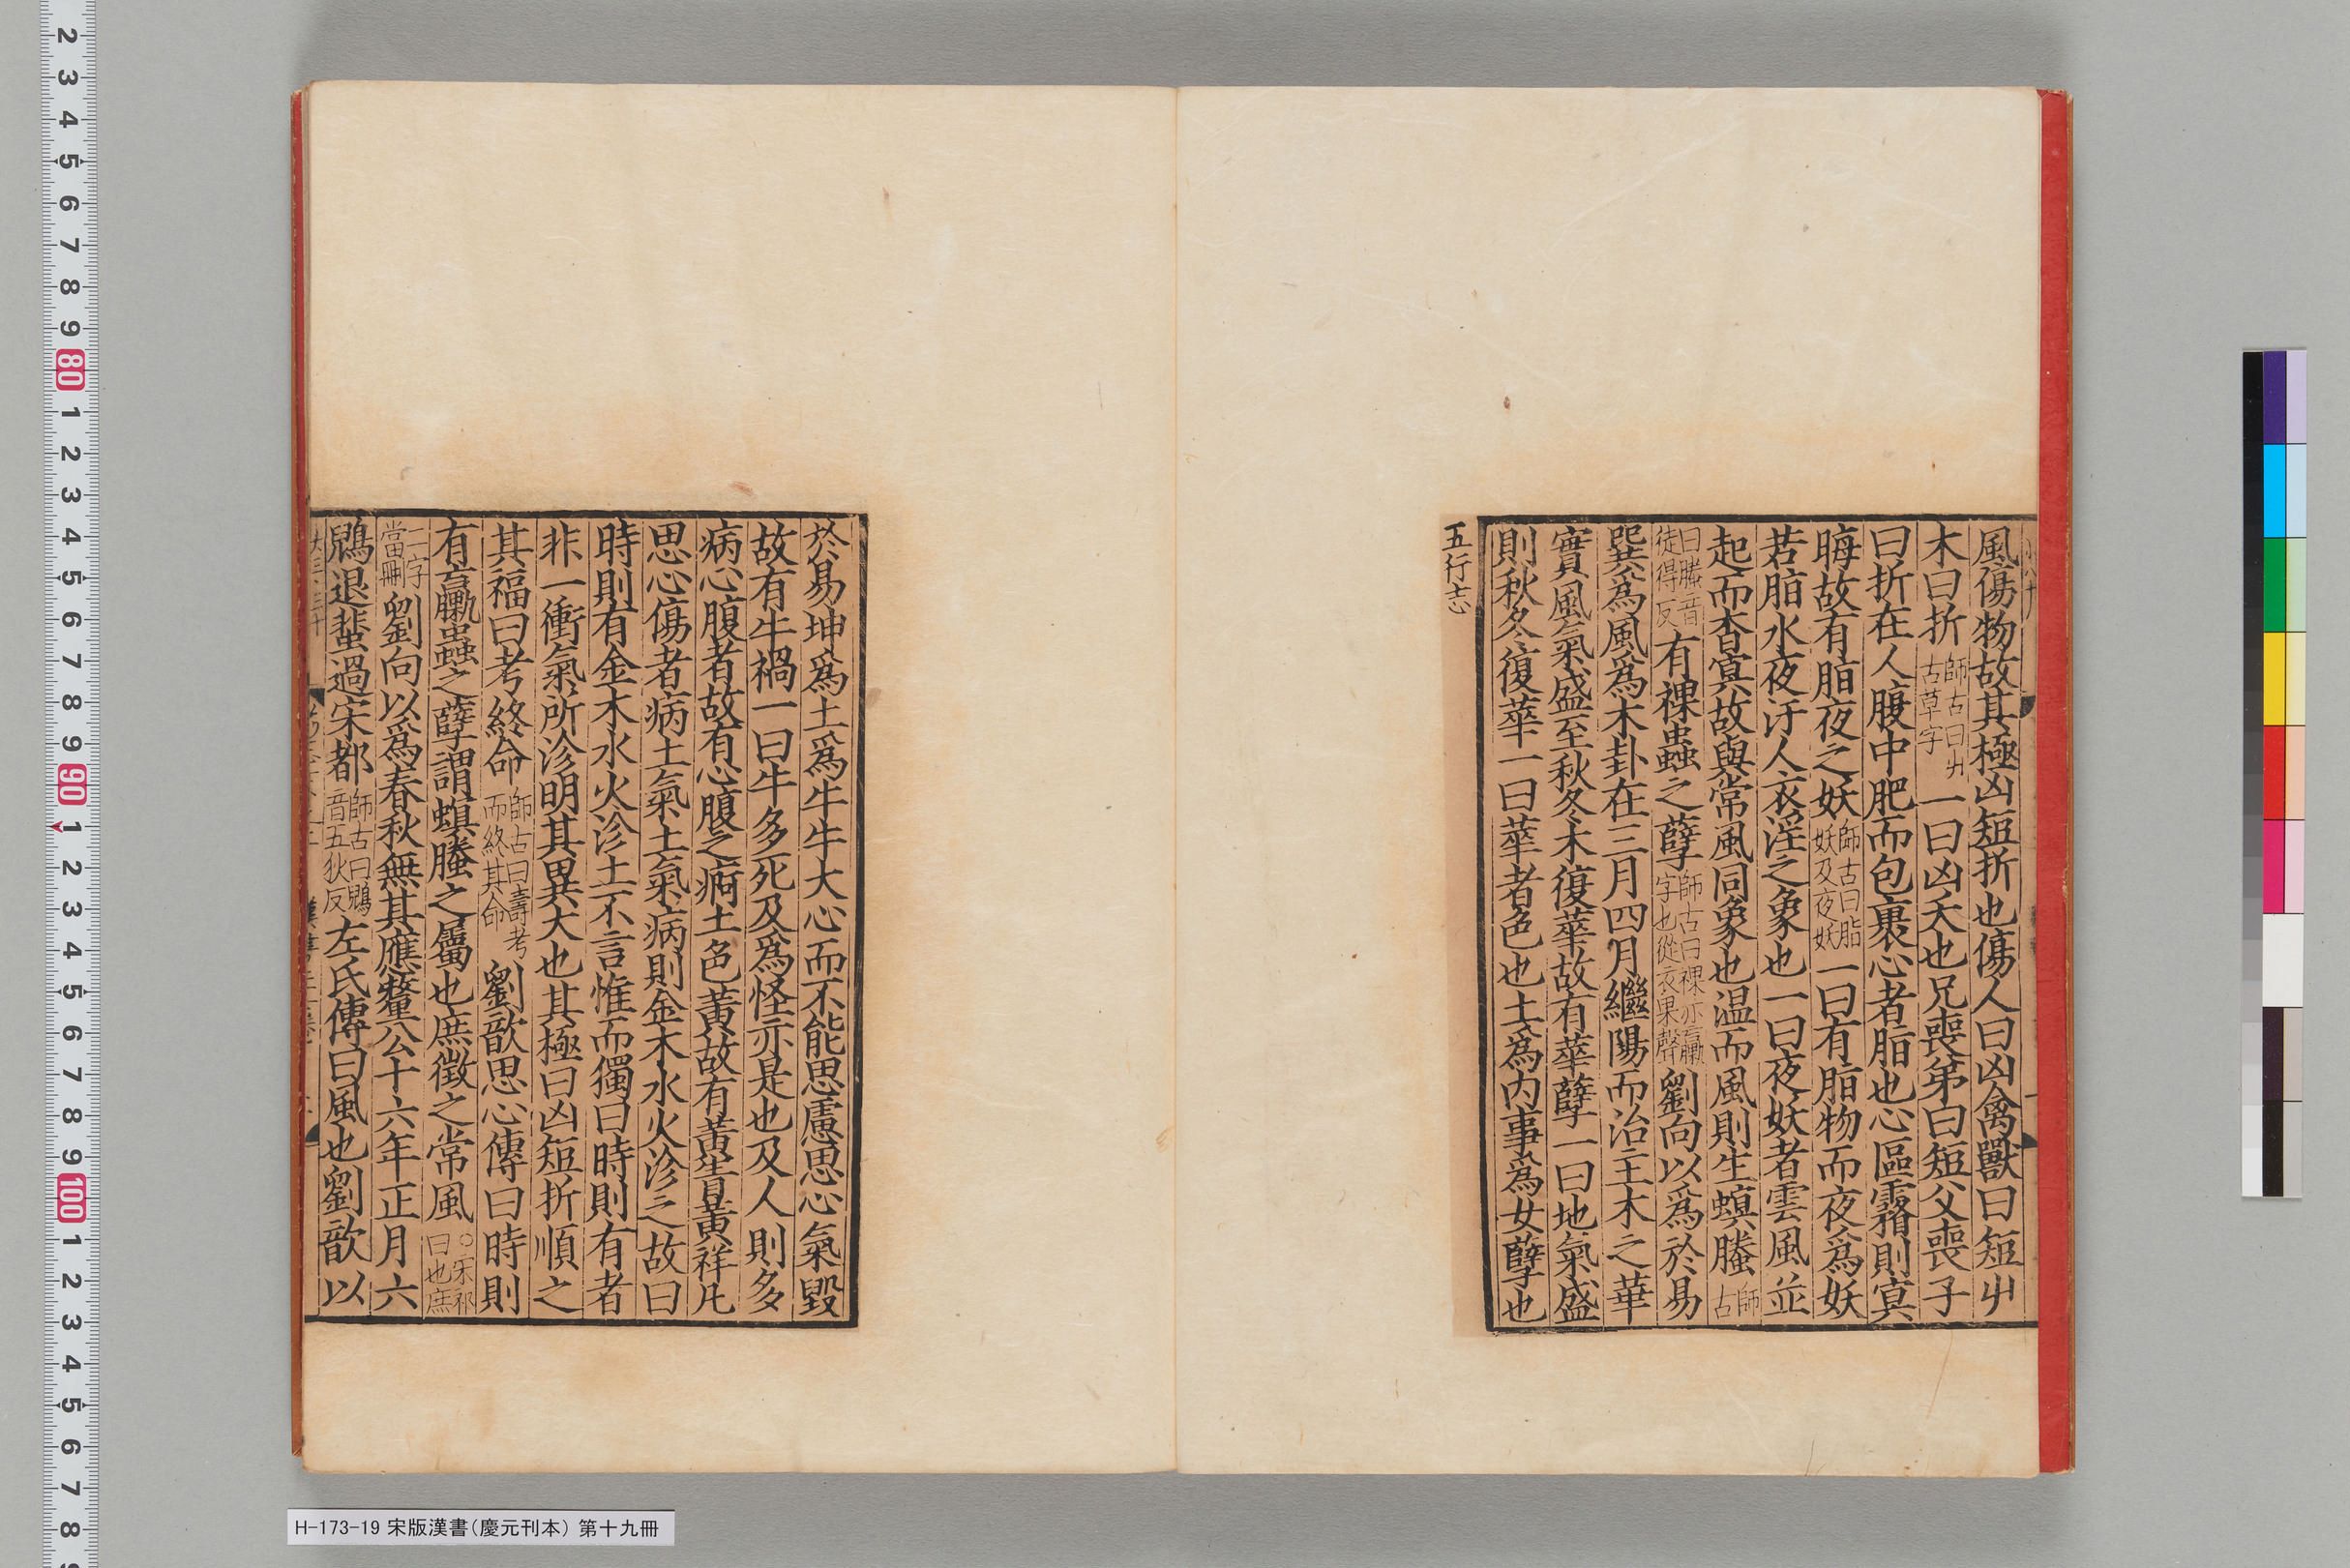 風傷物故其極凶短折也傷人曰凶禽獸曰短屮
木曰折師古曰屮古草字一曰凶夭也兄喪弟曰短父喪子
曰折在人腹中肥而包裹心者脂也心區霿則冥
晦故有脂夜之妖師古曰脂妖及夜妖一曰有脂物而夜爲妖
若脂水夜汙人衣淫之象也一曰夜妖者雲風並
起而杳冥故與常風同象也温而風則生螟螣師古
曰螣音徒得反有裸蟲之孽師古曰裸亦臝字也從衣果聲劉向以爲於易
巽爲風爲木卦在三月四月繼陽而治主木之華
實風氣盛至秋冬木復華故有華孽一曰地氣盛
則秋冬復華一曰華者色也土爲内事爲女孽也
五行志
於易坤爲土爲牛牛大心而不能思慮思心氣毀
故有牛禍一曰牛多死及爲怪亦是也及人則多
病心腹者故有心腹之痾土色黃故有黃眚黃祥凡
思心傷者病土氣土氣病則金木水火沴之故曰
時則有金木水火沴土不言惟而獨曰時則有者
非一衝氣所沴明其異大也其極曰凶短折順之
其福曰考終命師古曰壽考而終其命劉歆思心傳曰時則
有臝蟲之孽謂螟螣之屬也庶徵之常風○宋祁曰也庶
二字當刪劉向以爲春秋無其應釐公十六年正月六
鶂退蜚過宋都師古曰鶂音五狄反左氏傳曰風也劉歆以
H-173-19 宋版漢書（慶元刊本） 第十九冊
2 3 4 5 6 7 8 9 80 1 2 3 4 5 6 7 8 9 90 1 2 3 4 5 6 7 8 9 100 1 2 3 4 5 6 7 8